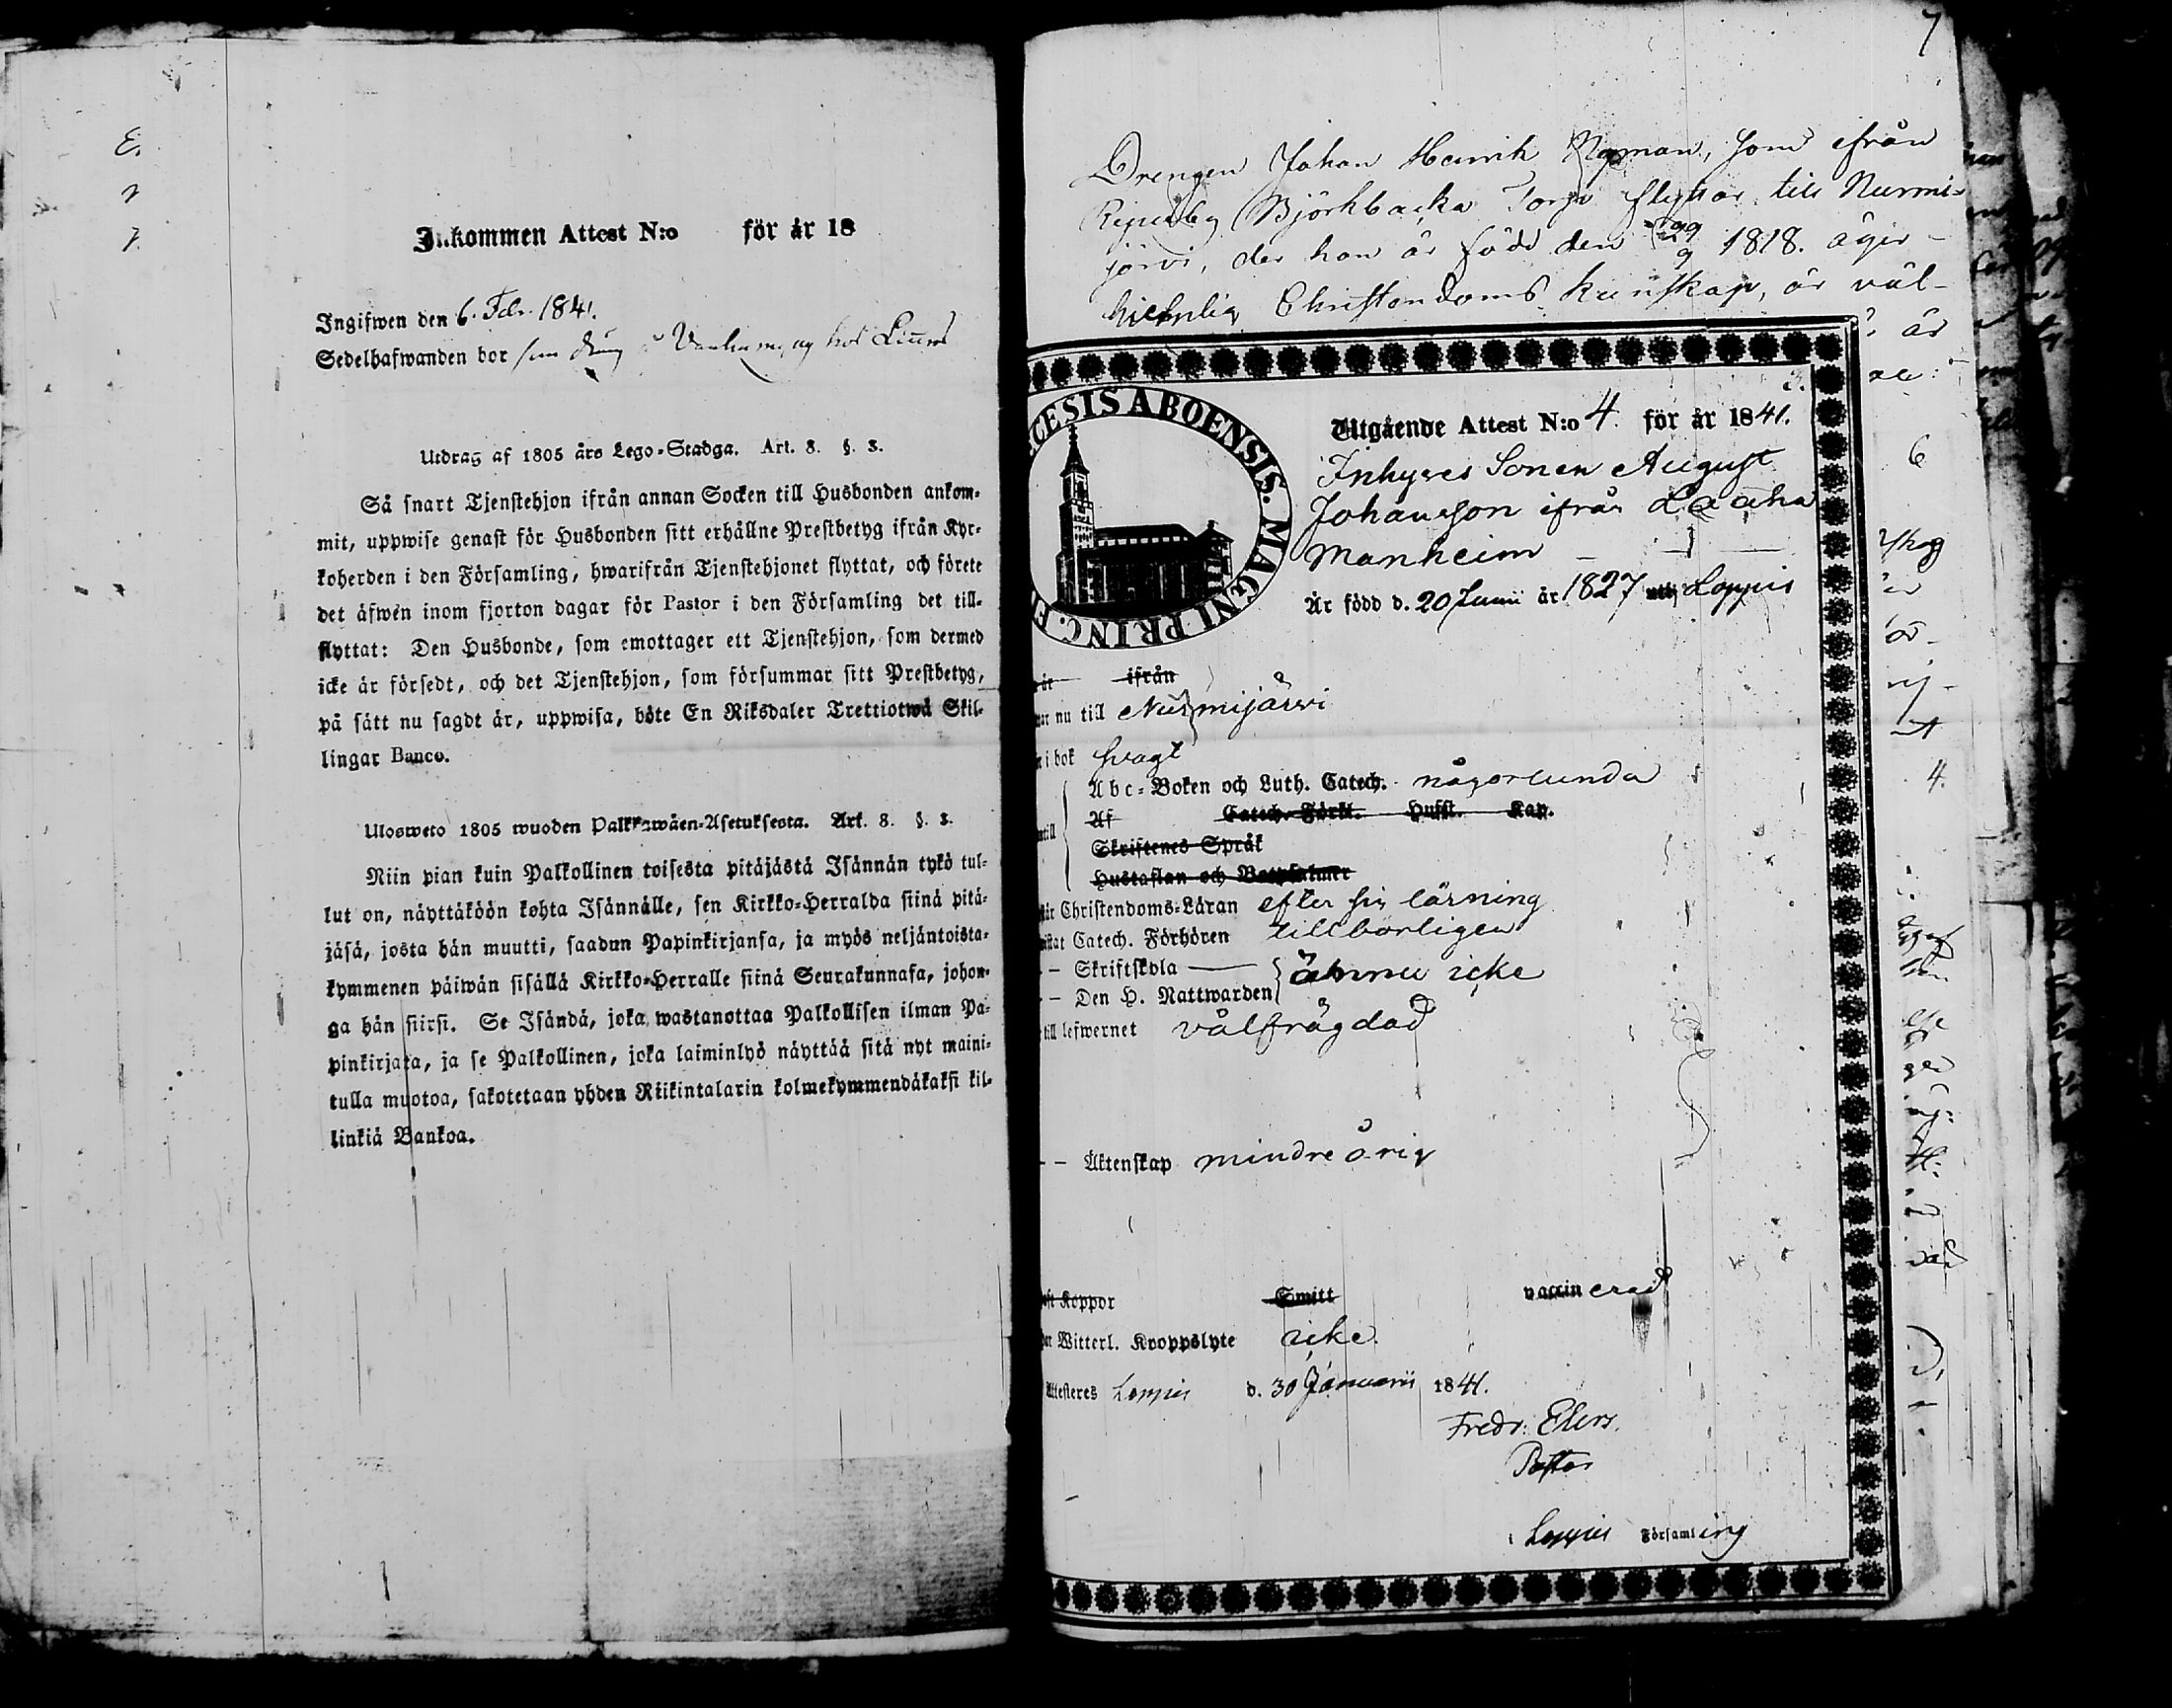 Inkommen Attest N:o för år 18
Ingifwen den 6. Febr. 1841.
Sedelhafwanden bor som dräng hos
Utdrag af 1805 års Lego-Stadga. Art. 8. §. 3.
Så snart Tjenstehjon ifrån annan Socken till Husbonden ankom-
mit, uppwise genast för Husbonden sitt erhållne Prestbetyg ifrån Kyr-
koherden i den Församling, hwarifrån Tjenstehjonet flyttat, och förete
det äfwen inom fjorton dagar för Pastor i den Församling det till-
flyttat: Den Husbonde, som emottager ett Tjenstehjon, som dermed
icke är försedt, och det Tjenstehjon, som försummar sitt Prestbetyg,
på sätt nu sagdt är, uppwisa, böte En Riksdaler Trettiotwå Skil-
lingar Banco.
Ulosweto 1805 wuoden Palkkawäen-Asetuksesta. Art. 8. §. 3.
Niin pian kuin Palkollinen toisesta pitäjästä Isännän tykö tul-
lut on, näyttäköön kohta Isännälle, sen Kirkko-Herralda siinä pitä-
jäsä, josta hän muutti, saadun Papinkirjansa, ja myös neljäntoista-
kymmenen päiwän sisällä Kirkko-Herralle siinä Seurakunnasa, johon-
ga hän siirsi. Se Isändä, joka wastanottaa Palkollisen ilman Pa-
pinkirjata, ja se Palkollinen, joka laiminlyö näyttää sitä nyt maini-
tulla muotoa, sakotetaan yhden Riikintalarin kolmekymmendäkaksi kil-
linkiä Bankoa.
7
Drengen Johan Henrik Nyman, som ifrån
Björkbacka Torp flyttar till Nurmi-
järvi, der han är född den 29/9 1818. äger
Christendoms kunskap, är väl-
är
CESIS ABOENSIS. MAGNI PRINC.
Utgående Attest N:o 4. för år 1841.
Inhyses Sonen August
Johansson ifrån Laaka
Manheim
År född d. 20 Junii år 1827 uti Loppis
ifrån
nu till Nurmijärvi
i bok svagt
Abc-Boken och Luth. Catech. någorlunda
Af Catech. Förkl. Husst. Kap.
Skriftenes Språk
Hustaflan och Botpsalmer
Christendoms-Läran efter sin lärning
Catech. Förhören tillbörligen
- - Skriftskola ännu icke
- - Den H. Nattwarden
till lefwernet välfrägdad
- - Äktenskap mindreårig
Koppor Smitt vaccinerad
Witterl. Kroppslyte icke.
Attesteres Loppis d. 30 Januarii 1841.
Fredr. Elers.
Pastor
i Loppis Församling
6
4.